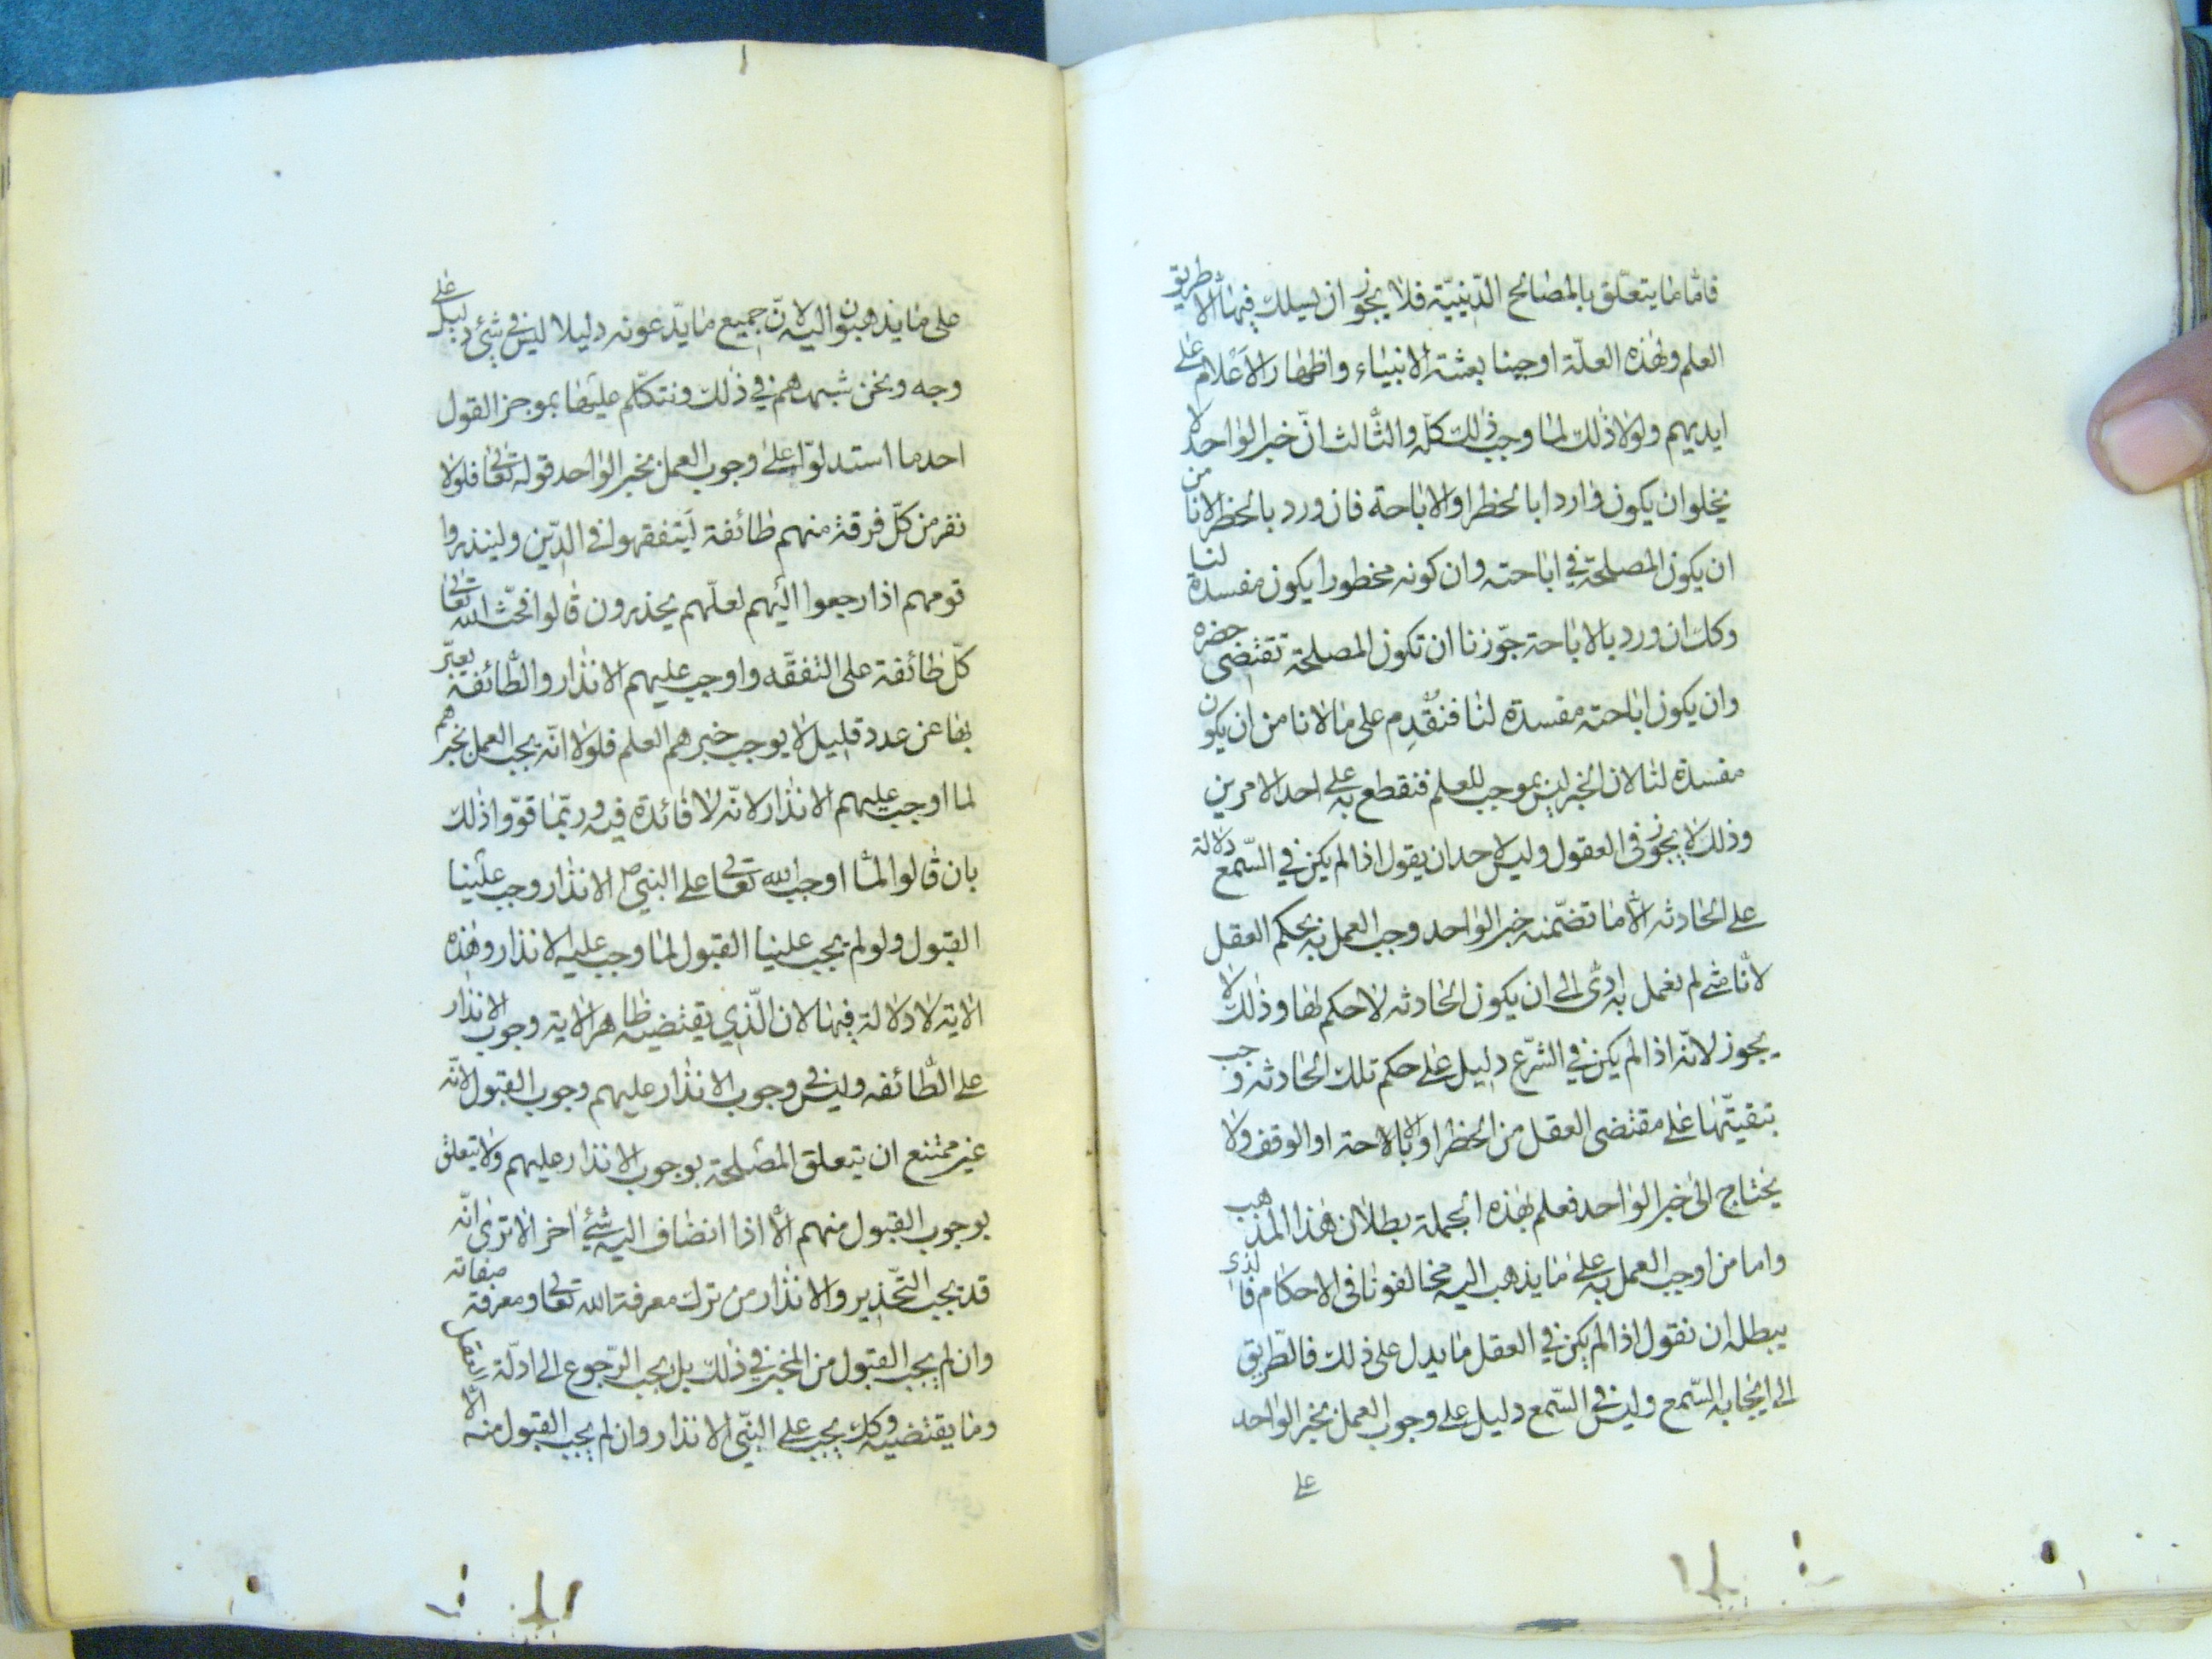 فامّا ما يتعلّق بالمصالح الدّينيّة فلا يجوز ان يسلك فيها الّا طريق
العلم ولهذه العلّة اوجبنا بعثة الانبياء واظهار الاَعْلام على
ايديهم ولولا ذلك لما وجب ذلك كلّه والثّالث انّ خبر الواحد لا
يخلو ان يكون واردا بالحظر او الاباحة فان ورد بالحظر لا نامن
ان يكون المصلحة في اباحته وان كونه محظورا يكون مفسدة لنا
وكك ان ورد بالاباحة جوّزنا ان تكون المصلحة تقتضى حضره
وان يكون اباحته مفسدة لنا فنُقْدِم على ما لا نامن ان يكون
مفسدة لنا لان الخبر ليس بموجب للعلم فنقطع به على احد الامرين
وذلك لا يجوز فى العقول وليس لاحد ان يقول اذا لم يكن في السّمع دلالة
على الحادثه الّا ما تضمّنه خبر الواحد وجب العمل به بحكم العقل
لانّا متى لم نعمل به ادّى الى ان يكون الحادثه لا حكم لها وذلك لا
يجوز لانّه اذا لم يكن في الشّرع دليل على حكم تلك الحادثه وجب
تبقيتها على مقتضى العقل من الحظر او الاباحة او الوقف ولا
يحتاج الى خبر الواحد فعلم بهذه الجملة بطلان هذا المذهب
واما من اوجب العمل به على ما يذهب اليه مخالفونا فى الاحكام فالذى
يبطله ان نقول اذا لم يكن في العقل ما يدل على ذلك فالطّريق
الى ايجابه السّمع وليس فى السّمع دليل على وجوب العمل بخبر الواحد
على
على ما يذهبون اليه لانّ جميع ما يدّعونه دليلا ليس فى شئ دليل على
وجه ونحن شبههم في ذلك ونتكلّم عليها بموجز القول
احد ما استدلّوا على وجوب العمل بخبر الواحد قوله تعالى فلولا
نفر من كلّ فرقة منهم طائفة ليتفقهوا فى الدّين ولينذروا
قومهم اذا رجعوا اليهم لعلّهم يحذرون قالوا فحثّ الله تعالى
كلّ طائفة على التّفقّه واوجب عليهم الانذار والطّائفة يعبّر
بها عن عدد قليل لا يوجب خبرهم العلم فلولا انّه يجب العمل بخبرهم
لما اوجب عليهم الانذار لانّه لا فائدة فيه وربّما قوّوا ذلك
بان قالوا لمّا اوجب الله تعالى على النبي ص الانذار وجب علينا
القبول ولو لم يجب علينا القبول لما وجب عليه الانذار وهذه
الاية لا دلالة فيها لان الّذي يقتضيه ظاهر الاية وجوب الانذار
على الطّائفه وليس فى وجوب الانذار عليهم وجوب القبول لانّه
غير ممتنع ان يتعلق المصلحة بوجوب الانذار عليهم ولا يتعلق
بوجوب القبول منهم الّا اذا انضاف اليه شئ اخر الا ترى انّه
قد يجب التّحذير والانذار من ترك معرفة الله تعالى ومعرفة صفاته
وان لم يجب القبول من المخبر في ذلك بل يجب الرّجوع الى ادلّة العقل
وما يقتضيه وكك يجب على النبّي الانذار وان لم يجب القبول منه الّا